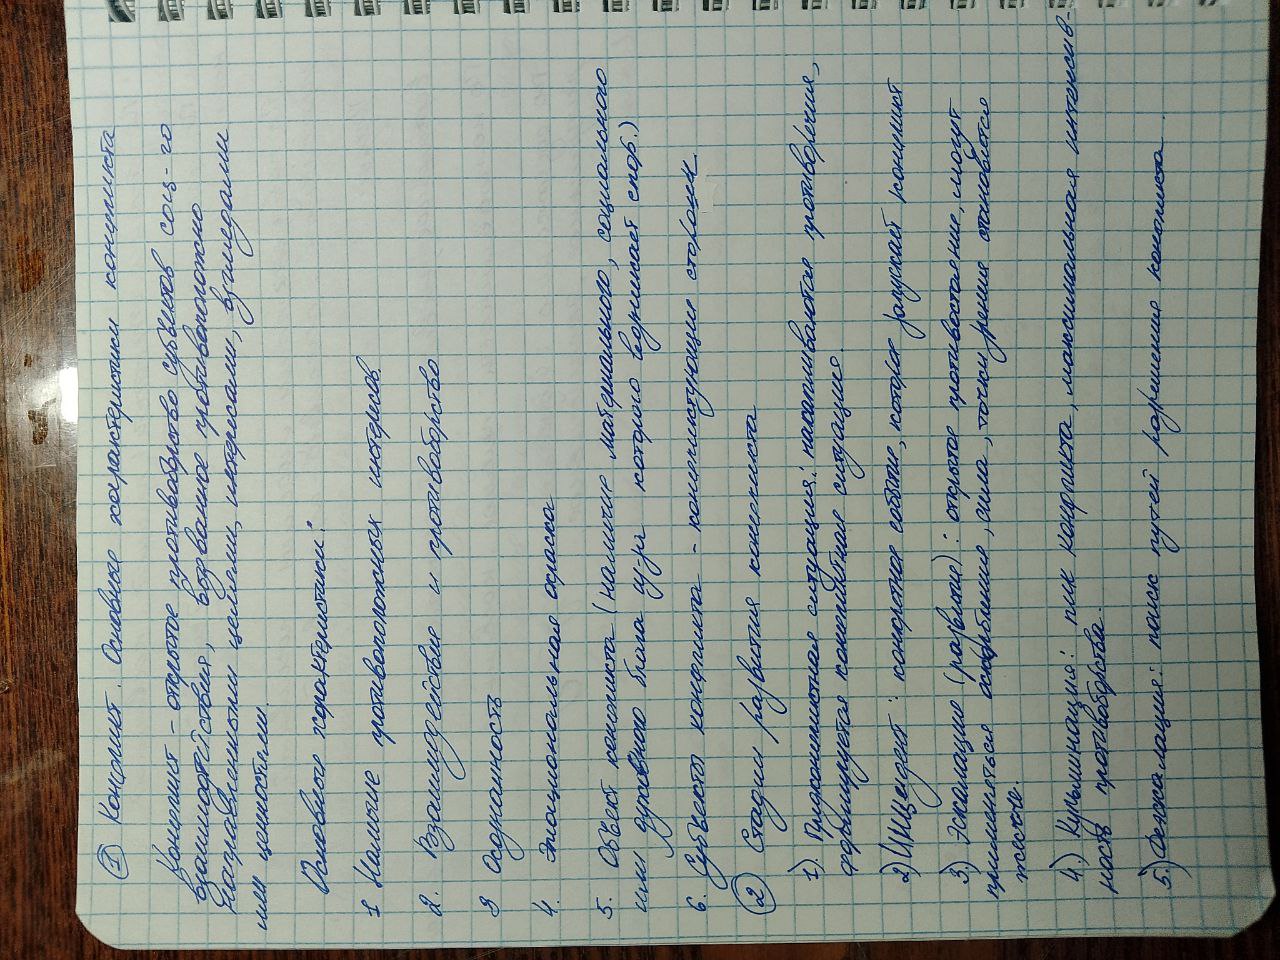 ① Конфликт. Основные характеристики конфликта
Конфликт - открытое противоборство субъектов соц-го
взаимодействия, вызванное противоположно
направленными целями, интересами, взглядами
или ценностями.
Основные характеристики:
1 Наличие противоположных интересов.
2. Взаимодействие и противоборство
3 Осознанность
4. Эмоциональная окраска
5. Объект конфликта (наличие материального, социального
или духовного блага из-за которого возникает спор.)
6. Субъекты конфликта - конфликтующие стороны
② Стадии развития конфликта
1) Предконфликтная ситуация: накапливаются противоречия,
формируется конфликтная ситуация.
2) ИНЦидент: конкретное событие, которое запускает конфликт
3) Эскалация (развитие): открытое противостояние, могут
применяться оскорбления, сила, точки зрения становятся
жестче.
4) Кульминация: пик конфликта, максимальная интенсив-
ность противоборства.
5.) Деэскалация: поиск путей разрешения конфликта.